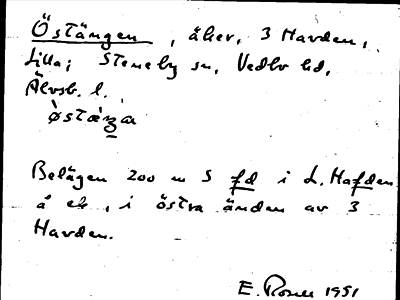 Östängen, åker, 3 Havden,
Lilla; Steneby sn, Vedbo hd,
Älvsb. l.
Belägen 200 m S fd i L. Hafden
å ek, i östra änden av 3
Havden.
E. 1951